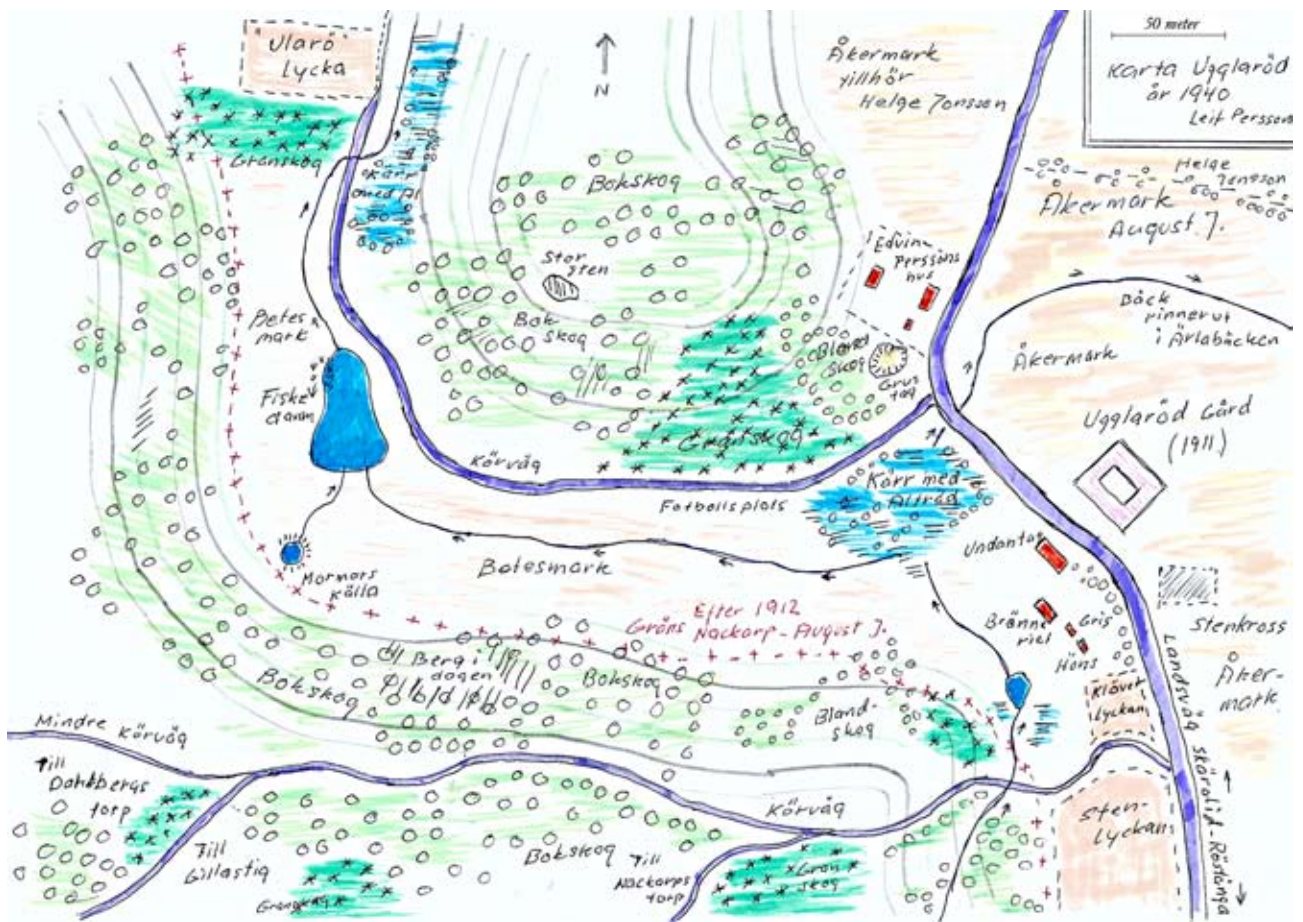 50 meter
Karta Ugglaröd
år 1940
Leif Persson
Ularö
Lycka
N
Åkermark
tillhör
Helge Jonsson
Helge
Jönsson
Åkermark
August. J.
Granskog
Kärr
med Al
Bokskog
Stor
sten
Bok
skog
Edvin
Perssons
hus
Bland
skog
Grus
tag
Bäck
rinner ut
i Ärlabäcken
Åkermark
Betes
mark
Fiske
damm
Ugglaröd Gård
(1911)
Granskog
Körväg
Fotbollsplats
Kärr med
Alträd
Mormors
Källa
Betesmark
Undantag
Bränne
riet
Gris
Höns
Stenkross
Åker-
mark
Efter 1912
Gräns Nackarp - August J.
Berg i
dagen
Bokskog
Bokskog
Bland-
skog
Klöver
Lyckan
Landsväg Skäralid-Röstånga
Mindre Körväg
Till
Dahlbergs
torp
Till
Gillastig
Granskog
Bokskog
Körväg
Till
Nackarps
torp
Gran
skog
Sten-
Lyckan